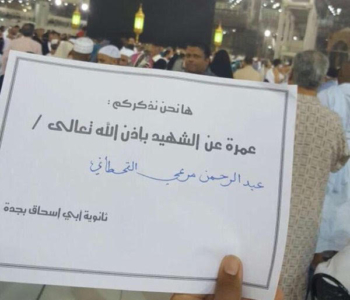 ها نحن نذكركم :
عمرة عن الشهيد بإذن الله تعالى /
عبد الرحمن مرعي القحطاني
ثانوية أبي إسحاق بجدة